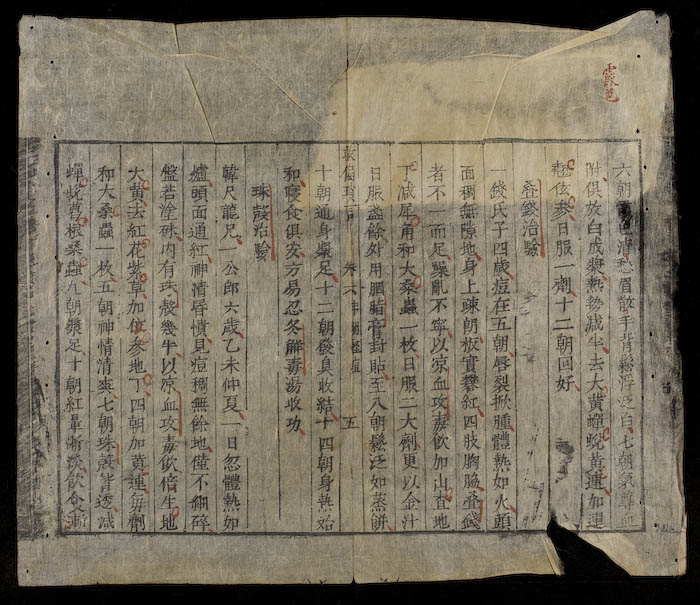 霞邑
六朝
愁眉散手背鬆浮泛白七朝氣尊血
附俱放白成漿熱勢減半去大黃蟬蛻黃連加連
翹伭參日服一劑十二朝回好
叠錢治驗
一錢氏子四歲痘在五朝唇裂掀腫體熱如火頭
面稠無隙地身上疎朗椒實礬紅四肢胸脇叠錢
者不一而足躁亂不寧以凉血攻毒飲加山查地
丁减犀角和大桑蟲一枚日服二大劑更以金汁
日服盞餘外用胭脂膏封貼至八朝鬆泛如蒸餅
十朝通身漿足十二朝俊臭收結十四朝身熱始
和寢食俱安方易忍冬解毒湯收功
珠殼治驗
韓尺龍兄一公郎六歲乙未仲夏一日忽體熱如
爐頭面通紅神清唇憒見痘稠無餘地僅不細碎
盤若塗硃內有珠殼幾半以凉血攻毒飲倍生地
大黃去紅花紫草加伭參地丁四朝加黃連每劑
和大桑蟲一枚五朝神情清爽七朝珠殼皆透减
蟬蛻葛根桑蟲九朝漿足十朝紅暈漸淡飲食漸
卷
五